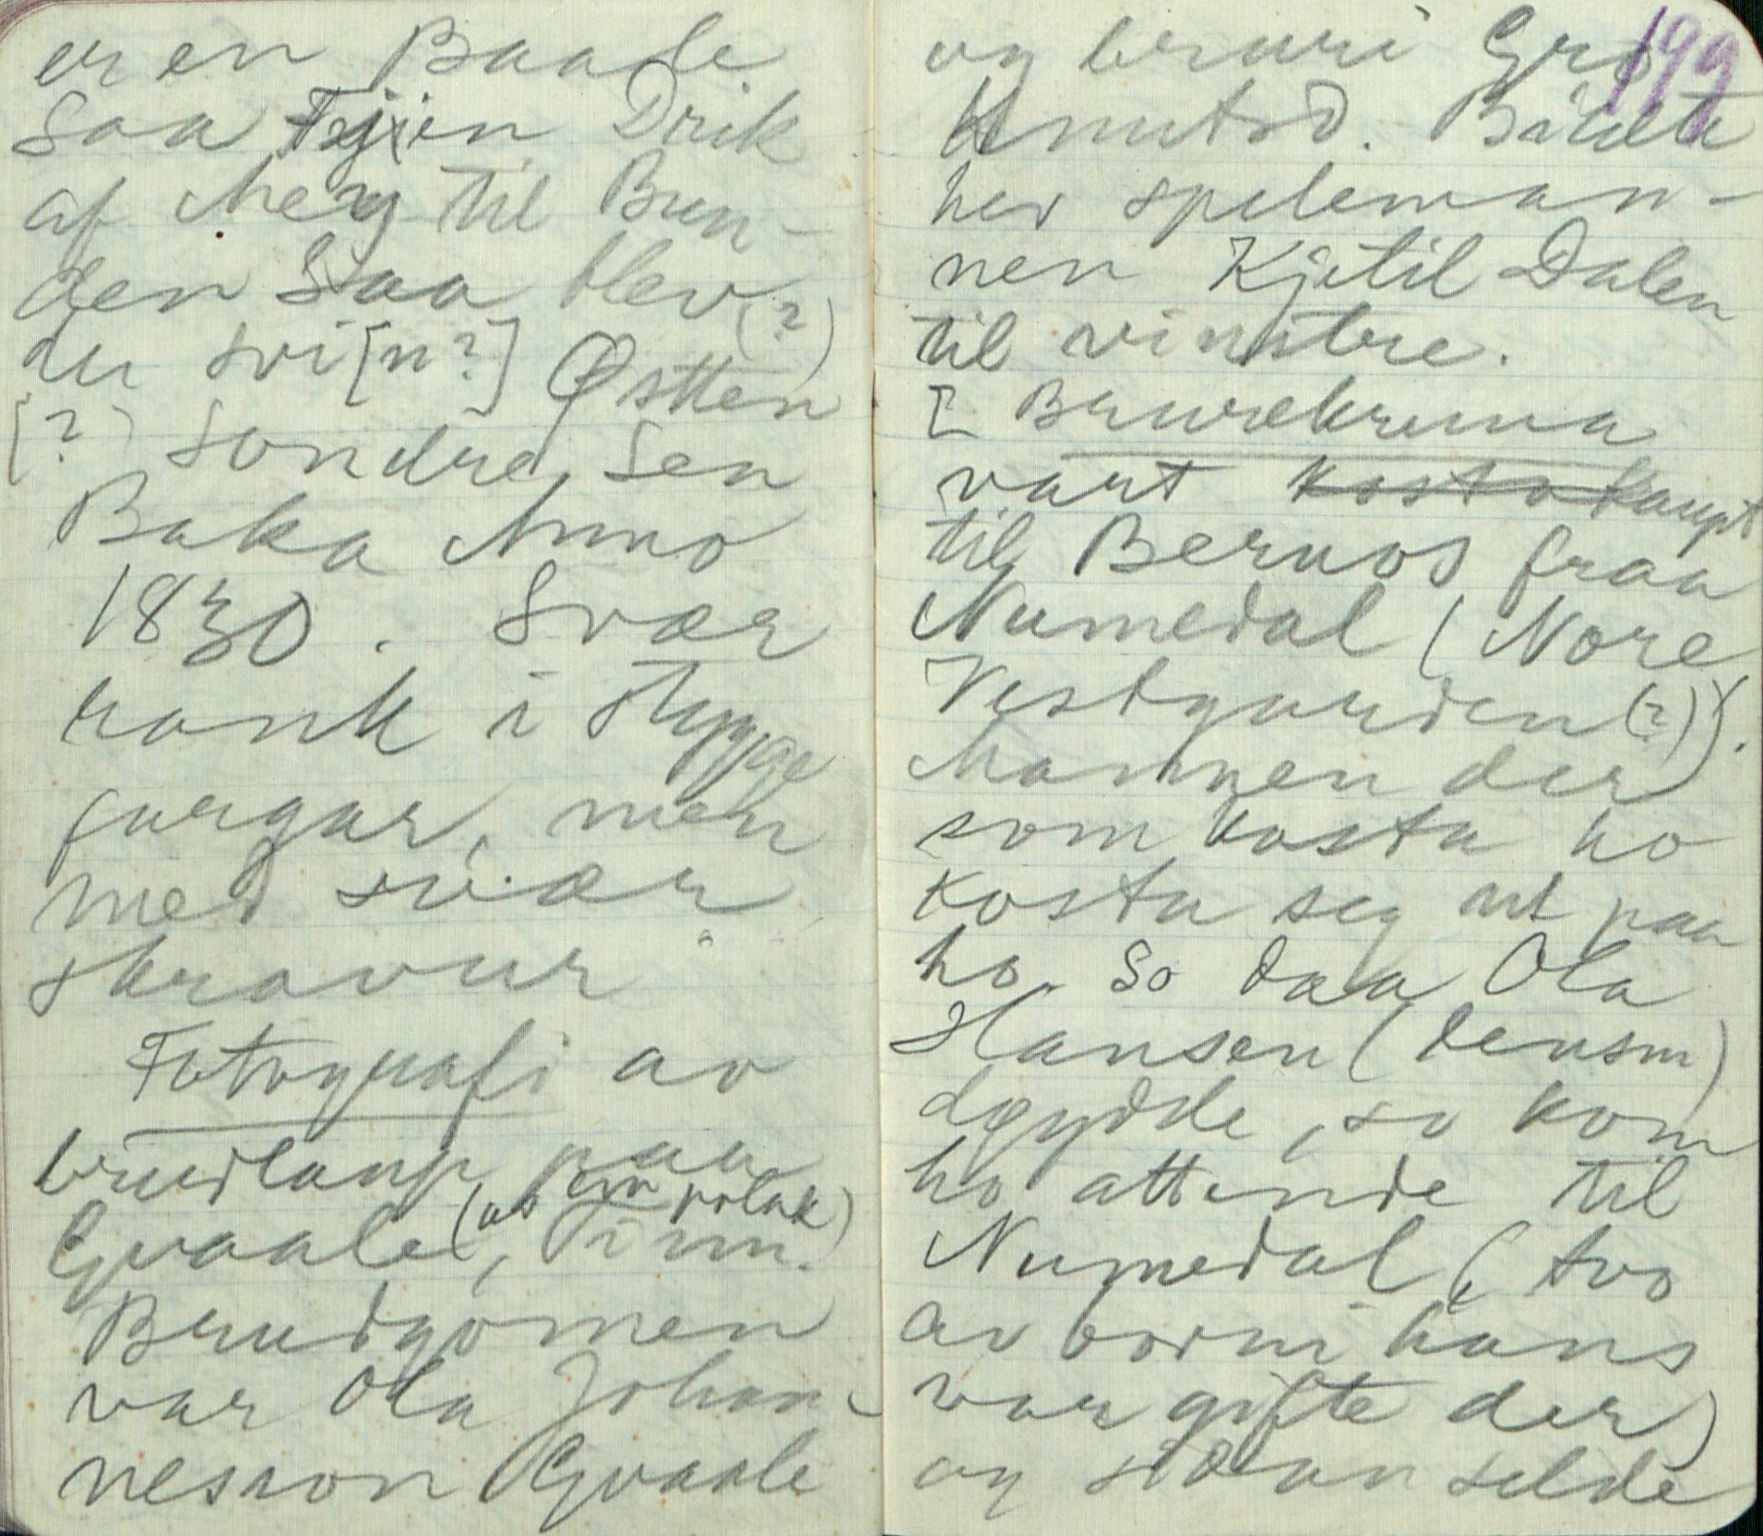 er en Baade
saa Fejen Drik
af Meg til Bun-
den Saa blev (?)
du svi[n?] Østten
[?) Sondre Sen
Baka Anno
1830. Svær
rank i stygge
fargar, men
med svær
skravur
Fotografi av
brudlaup paa
Gvaale, Tinn.
Brudgomen
var Ola Johan-
nesson Gvaale
og bruri Gro
Knutsd.
her speleman-
nen Kjetil Dalen
til vinstre.
[ Brurekruna
vart kosta kaupt
til Bernos fraa
Numedal (Nore
Vestgarden (?)).
Mannen der
som kosta ho
kosta seg ut paa
ho. So daa Ola
Hansen (densm)
døydde, so kom
ho attende til
Numedal (tvo
av borni hans
var gifte der)
og sidan selde
199